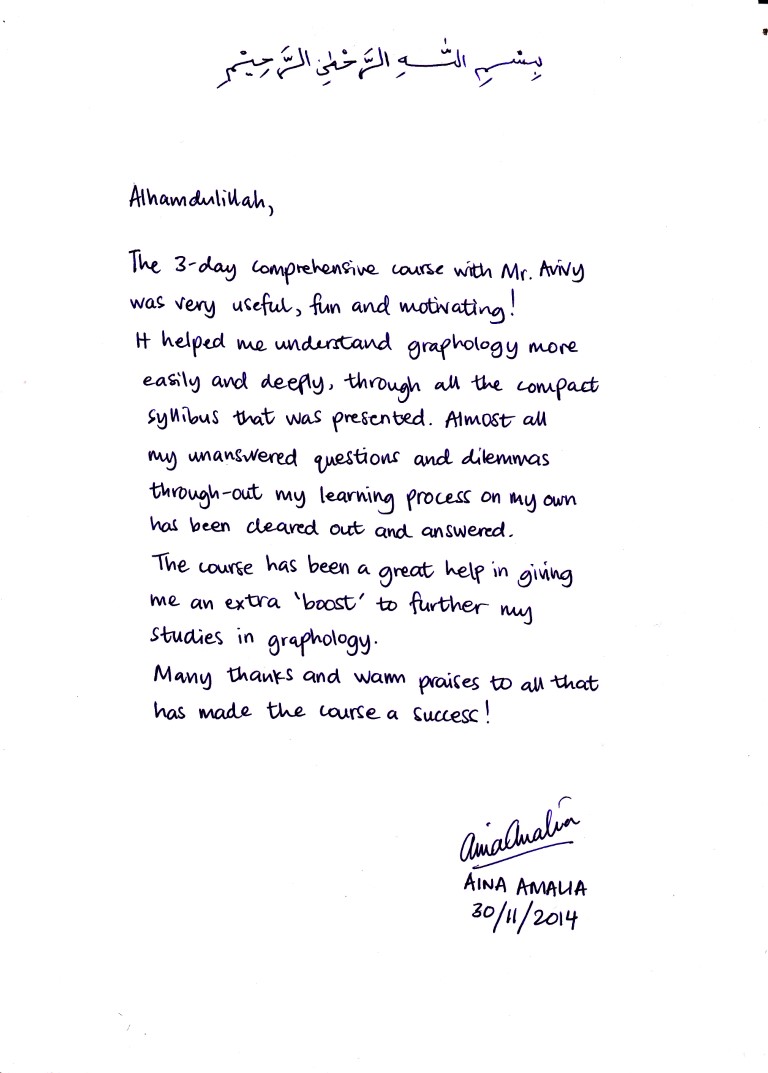 بِسْمِ اللّٰهِ الرَّحْمٰنِ الرَّحِيْمِ
Alhamdulillah,
The 3-day comprehensive course with Mr. Avivy
was very useful, fun and motivating!
It helped me understand graphology more
easily and deeply, through all the compact
syllibus that was presented. Almost all
my unanswered questions and dilemmas
through-out my learning process on my own
has been cleared out and answered.
The course has been a great help in giving
me an extra 'boost' to further my
studies in graphology.
Many thanks and warm praises to all that
has made the course a success!
Aina Amalia
AINA AMALIA
30/11/2014